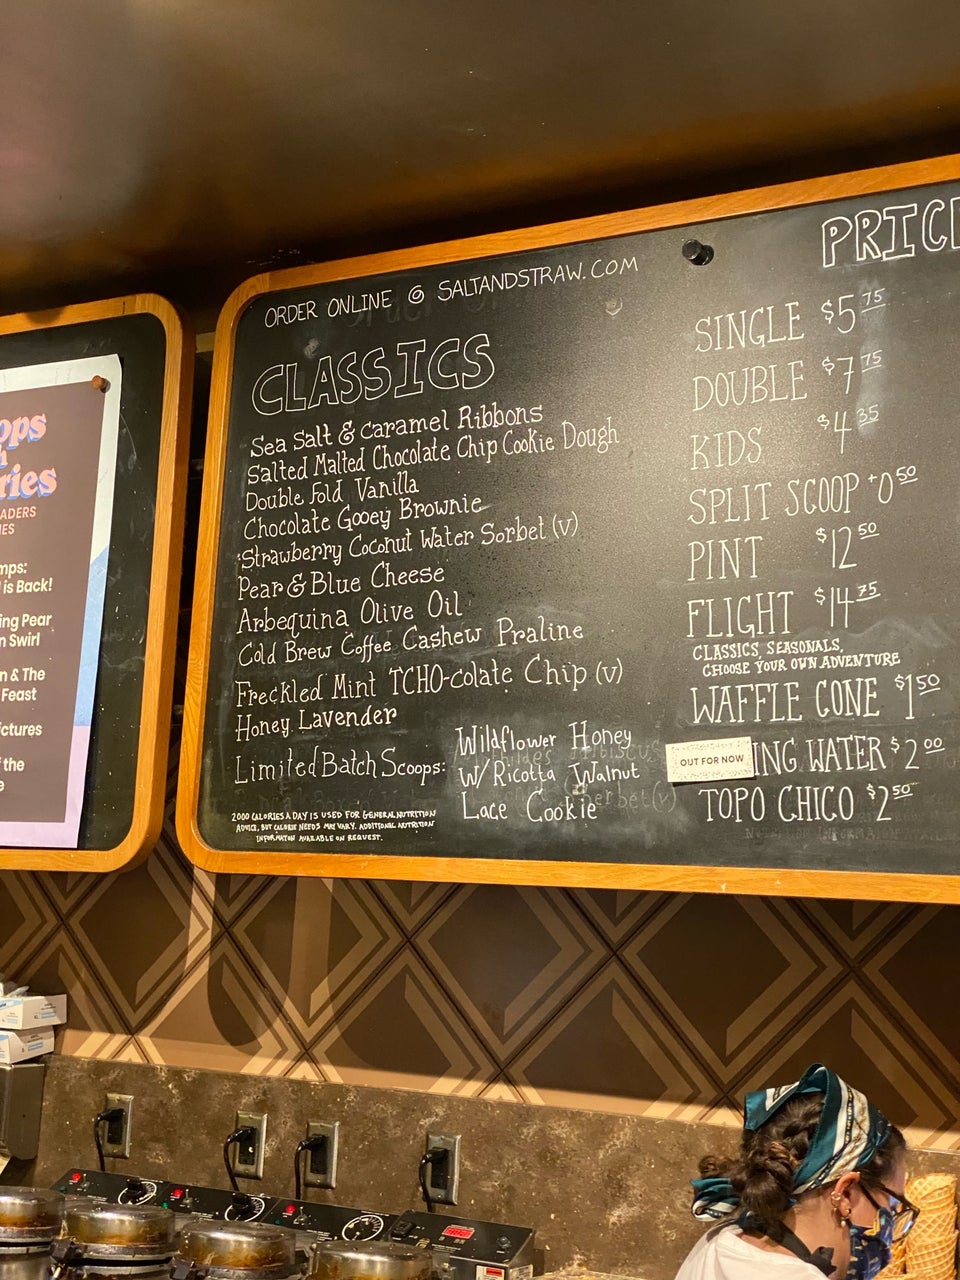 ORDER ONLINE @ SALTANDSTRAW.COM
CLASSICS
Sea Salt & Caramel Ribbons
Salted Malted Chocolate Chip Cookie Dough
Double Fold Vanilla
Chocolate Gooey Brownie
Strawberry Coconut Water Sorbet (v)
Pear & Blue Cheese
Arbequina Olive Oil
Cold Brew Coffee Cashew Praline
Freckled Mint TCHO-colate Chip (v)
Honey Lavender
Limited Batch Scoops:
Wildflower Honey
W/ Ricotta Walnut
Lace Cookie
2000 CALORIES A DAY IS USED FOR GENERAL NUTRITION
ADVICE, BUT CALORIE NEEDS MAY VARY. ADDITIONAL NUTRITION
INFORMATION AVAILABLE ON REQUEST.
PRIC
SINGLE $5 75
DOUBLE $7 75
KIDS $4 35
SPLIT SCOOP +0 50
PINT $12 50
FLIGHT $14 75
CLASSICS, SEASONALS,
CHOOSE YOUR OWN ADVENTURE
WAFFLE CONE $1 50
OUT FOR NOW
ING WATER $2 00
TOPO CHICO $2 50
ops
h
ries
ADERS
IES
mps:
l is Back!
ing Pear
n Swirl
n & The
Feast
ictures
f the
e